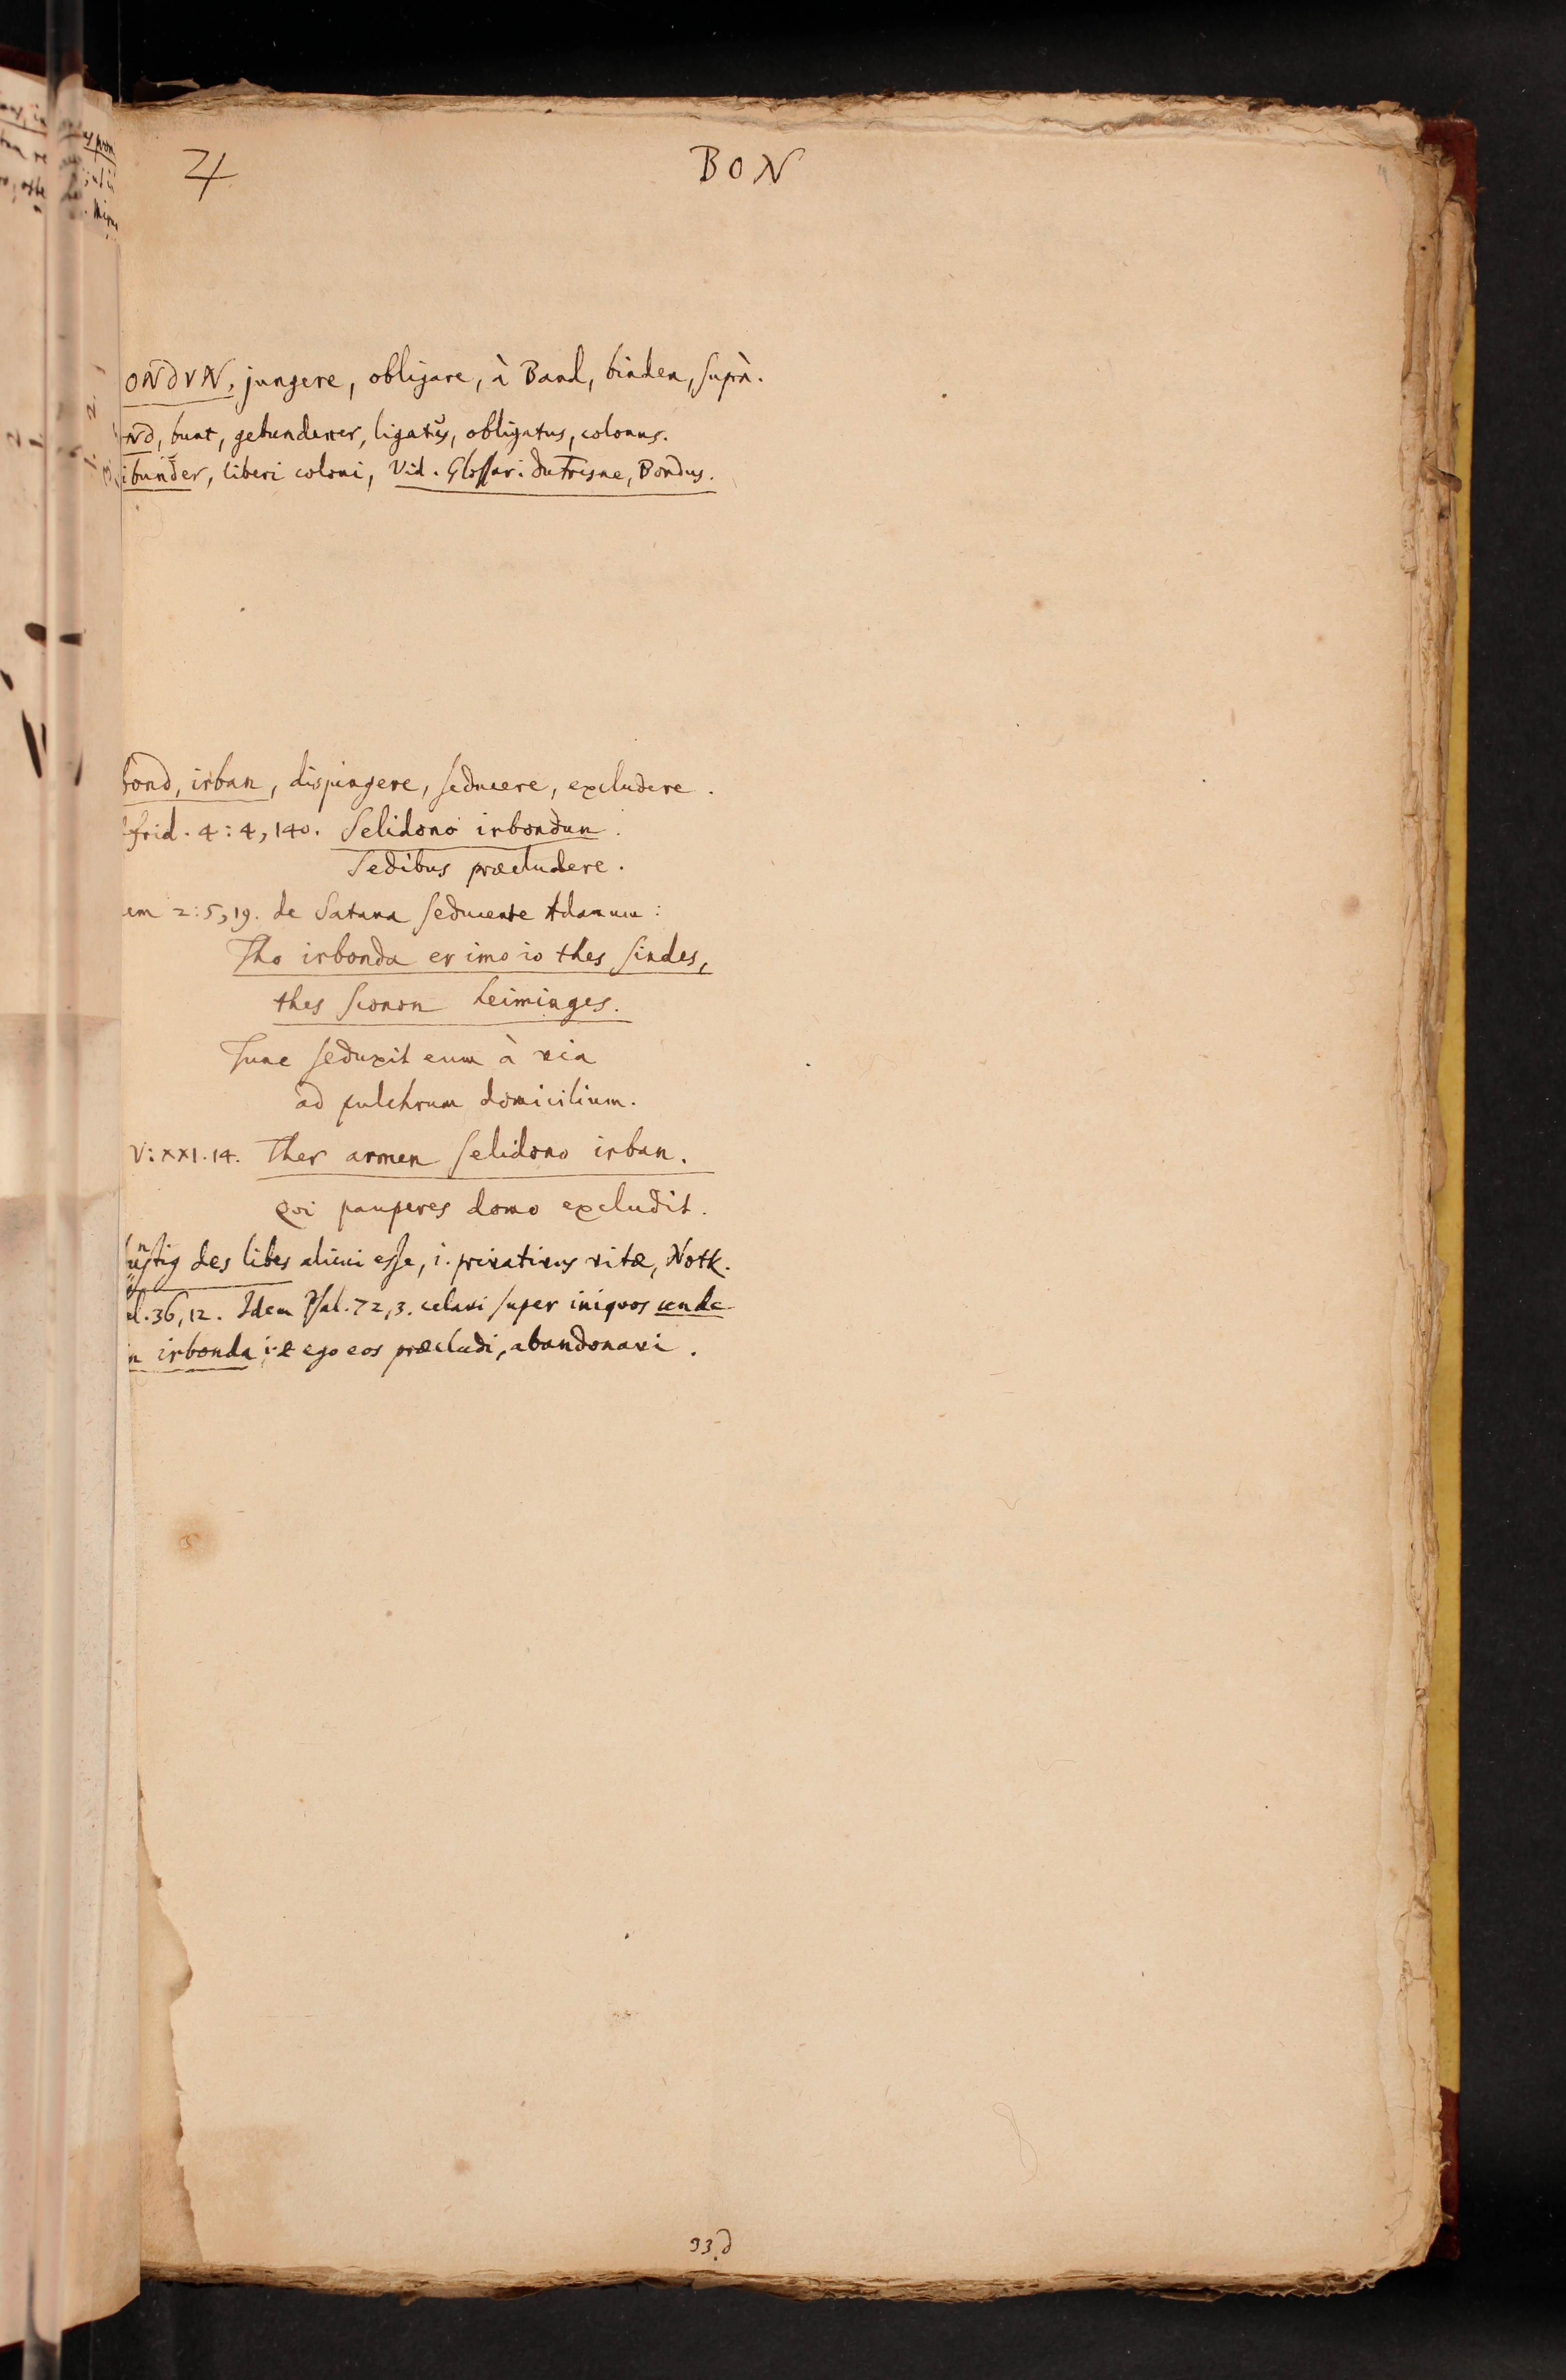 4
BON
ONDVN, jungere, obligare, à Band, binden, suprà.
ND, bunt, gebundener, ligatus, obligatus, colonus.
ibunder, liberi coloni, Vid. Glossar. du Fresne, Bondus.
bond, irban, disjungere, seducere, excludere.
frid. 4:4, 140. Selidono irbondun.
Sedibus præcludere.
em 2:5, 19. de Satana seducente Adamum:
Tho irbonda er imo io thes sindes,
thes sconon heiminges.
Tunc seduxit eum à via
ad pulchrum domicilium.
V:XXI.14. Ther armen selidono irban.
Qvi pauperes domo excludit.
des libes alicui esse, i. privativus vitæ, Notk.
36, 12. Idem Psal. 72, 3. celavi super iniqvos
n irbonda i.e ego eos præcludi, abandonavi.
93.d